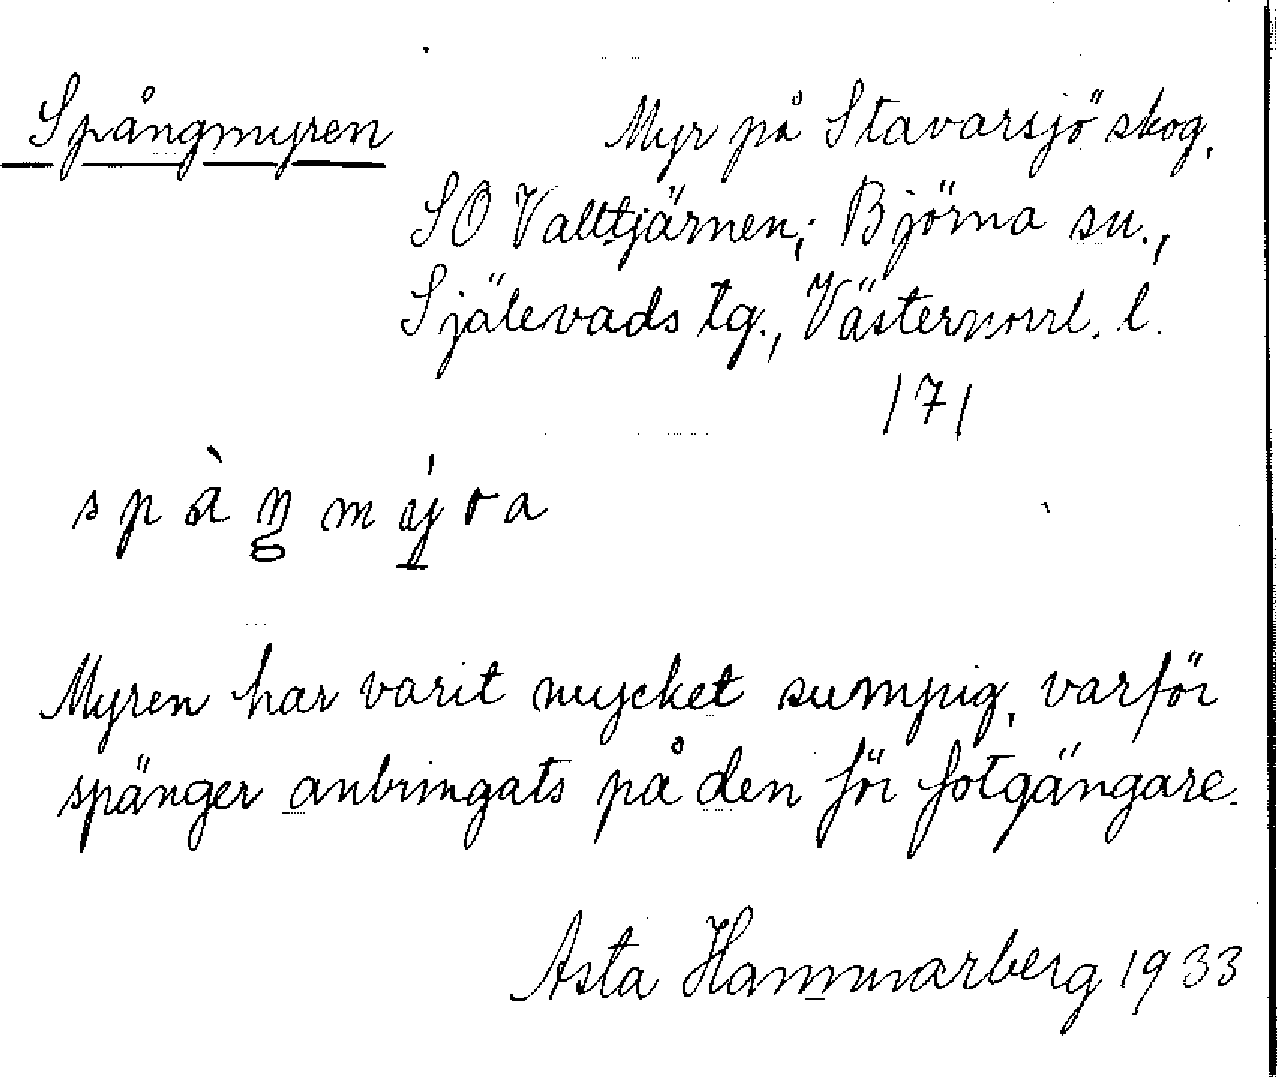 Spångmyren
Myr på Stavarsjö skog,
SO Valltjärnen; Björna sn.,
Själevads tg., Västernorrl. l.
171
spàŋmýra
Myren har varit mycket sumpig, varför
spänger anbringats på den för fotgängare.
Asta Hammarberg 1933